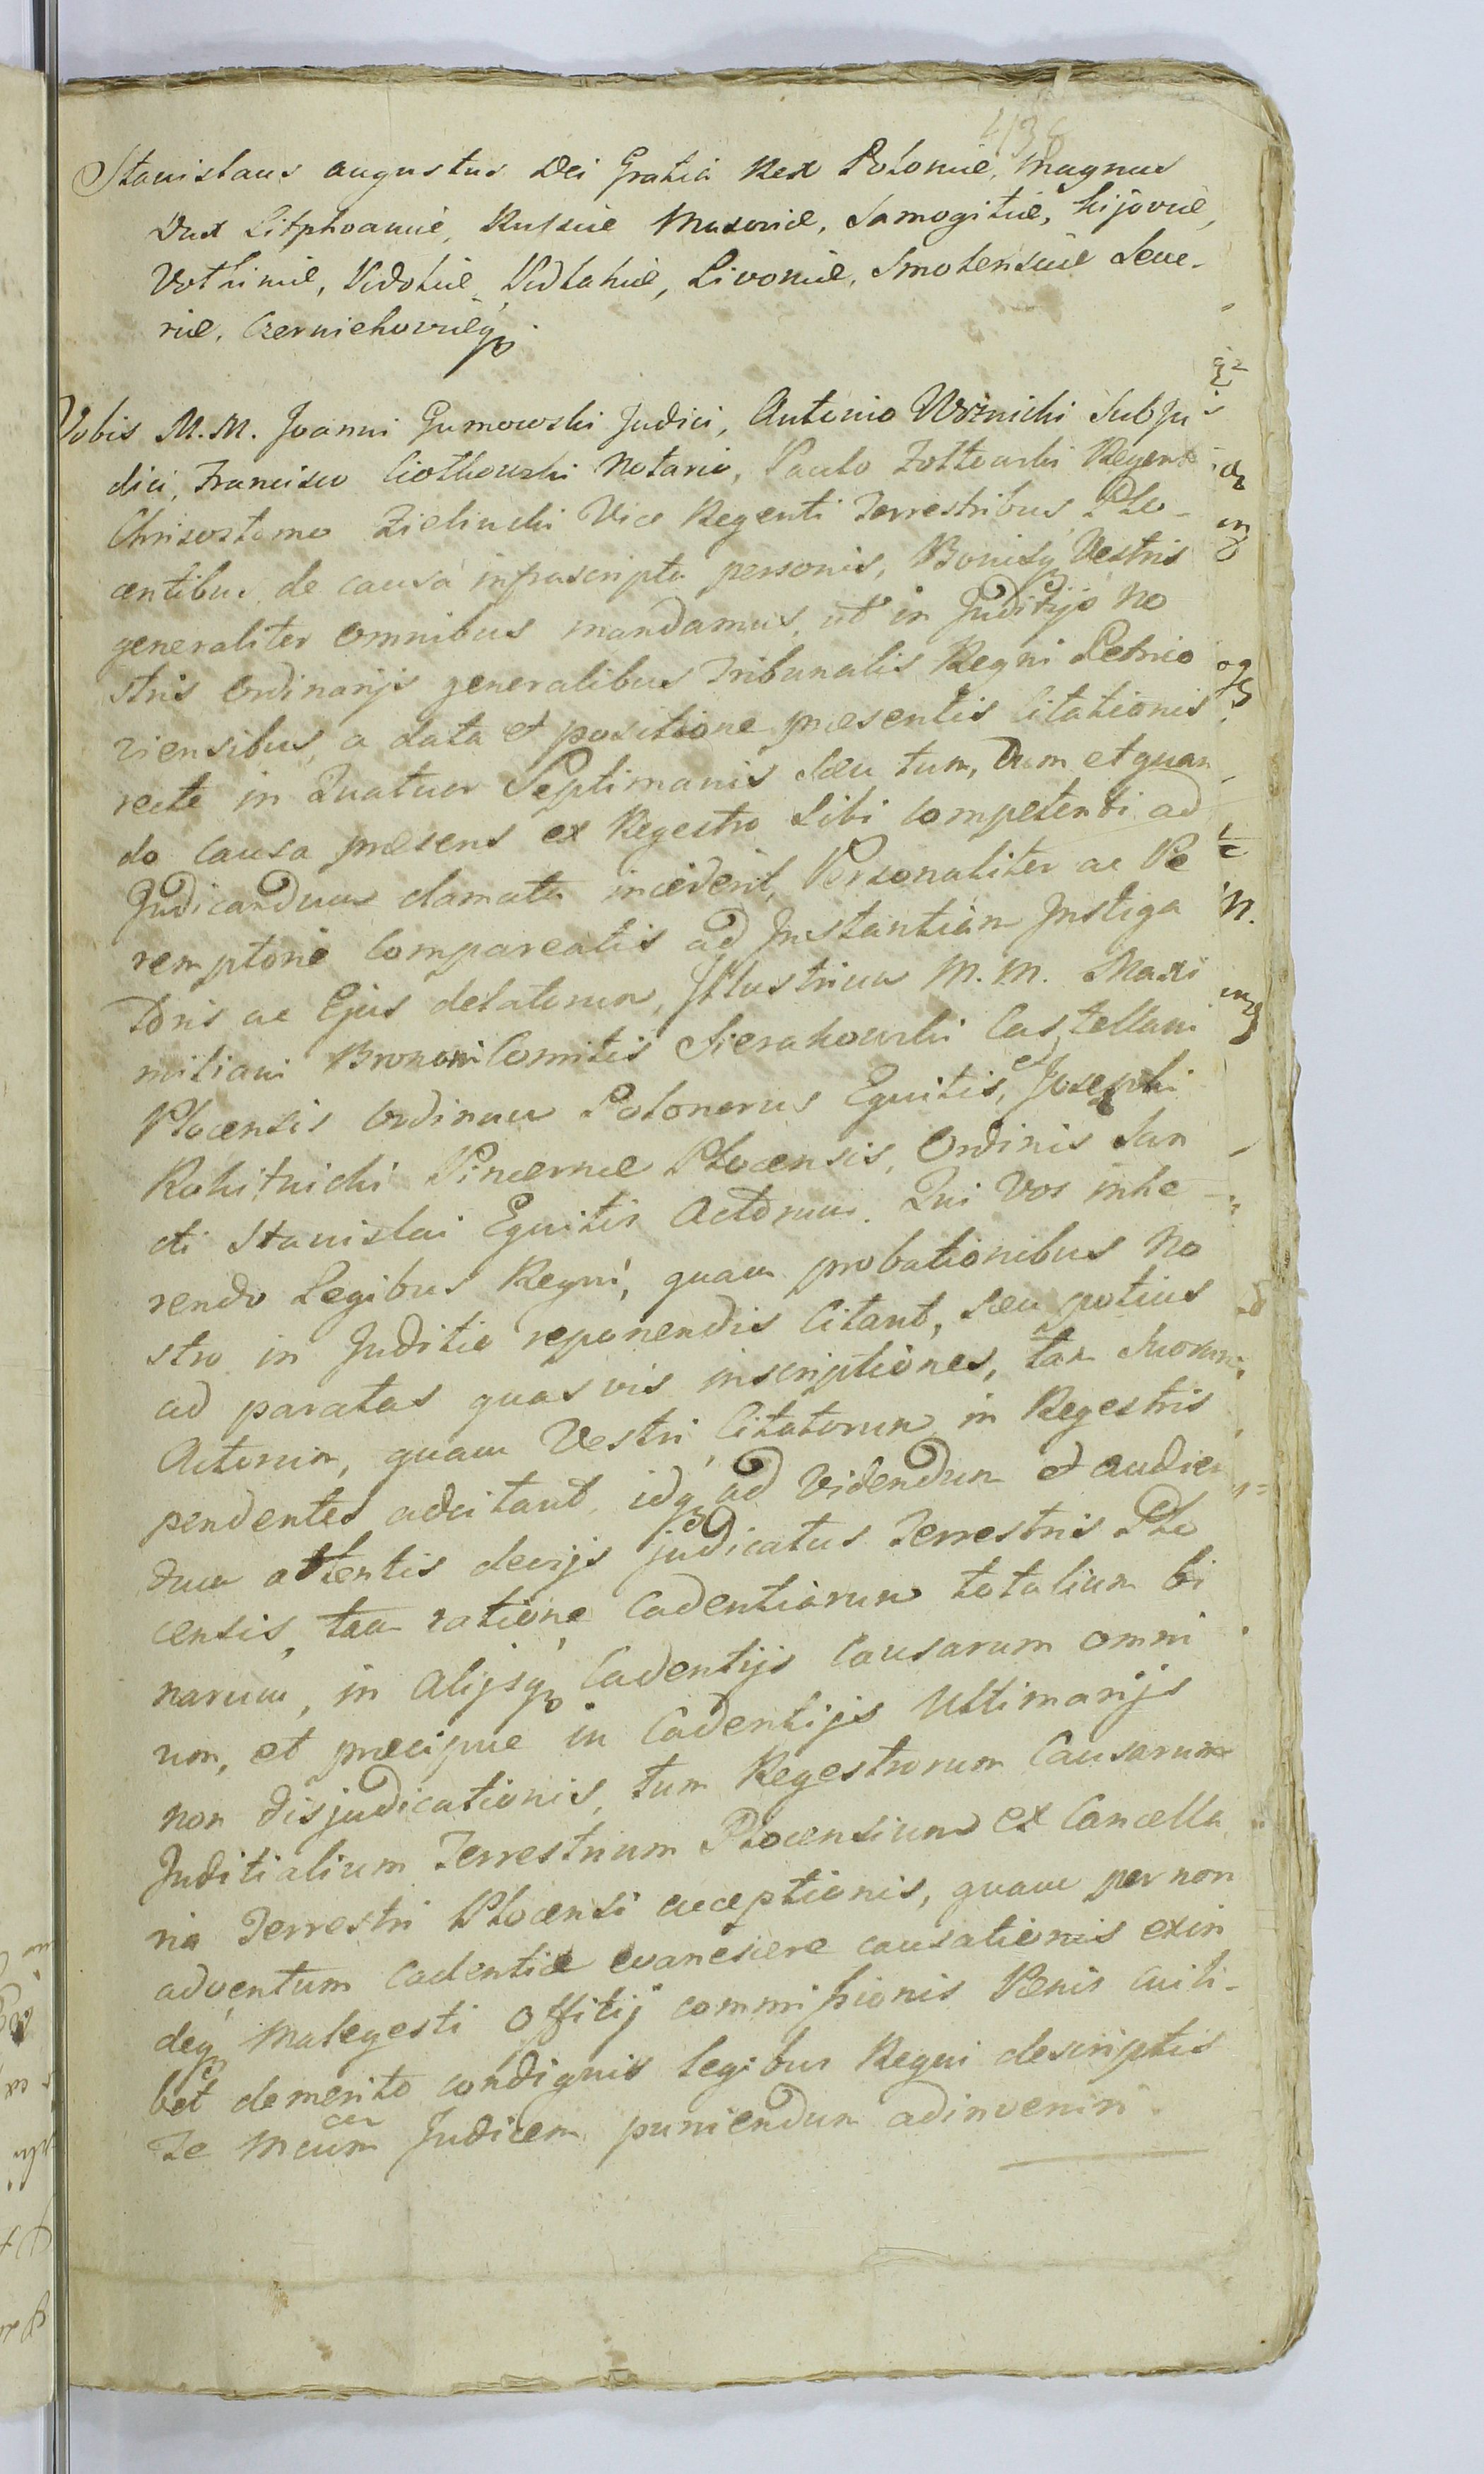 Stanislaus Augustus Dei Gratia Rex Poloniæ, Magnus
Dux Litphvaniæ, Russiæ Masoviæ, Samogitiæ, Kijoviæ,
Volhiniæ, Podoliæ, Podlahiæ, Livoniæ, Smolensciæ Seve-
riæ, Czerniehoviæq;
Vobis M. M. Joanni Gumowski Judici, Antonio Woźnicki Subju
dici, Francisco Ciołkowski Notario, Paulo Żołtowski Regenti
Chrisostomo Zielinski Vice Regenti Terrestribus Plo-
censibus de causa infrascripta personis, Bonisq; Vestris
generaliter omnibus mandamus, ut in Juditijs No
stris Ordinarijs generalibus Tribunalis Regni Petrico
viensibus, a data et positione præsentis Citationis
recte in Quatuor Septimanis seu tum, dum et quan
do Causa præsens ex Regestro sibi competenti ad
Judicandum clamata inciderit, Personaliter ac Pe
remptorie Compareatis ad Instantiam Instiga
toris ac Ejus delatorum, Illustrium M. M. Maxi
miliani Comitis Sierakowski Castellani
Plocensis Ordinum Polonorus Equitis, et Josephi
Rokitnicki Pincernæ Plocensis, Ordinis San
cti Stanislai Equitis Actorum. Qui Vos inhe
rendo Legibus Regni, quam probationibus No
stro in Juditio reponendis Citant, seu potius
ad paratas quasvis inscriptiones, tam Suorum
Actorum, quam Vestri Citatorum in Regestris
pendentes adcitant, idq; ad Videndum et audien
dum attentis decijs judicatus Terrestris Plo
censis, tam ratione Cadentiarum totalium bi
narum, in Alijsq; Cadentijs Causarum omni
um, et præcipue in Cadentijs Ultimarijs
non disjudicationis, tum Regestrorum Causarum
Juditialium Terrestrium Plocensium ex Cancella
ria Terrestri Plocensi acceptionis, quam per non
adventum Cadentiæ evanescere causationis exin
deq; Malegesti Offitij commissionis Pænis cuili-
bet demerito condignis legibus Regni descriptis
Te Mcum Judicem puniendum adinveniri.